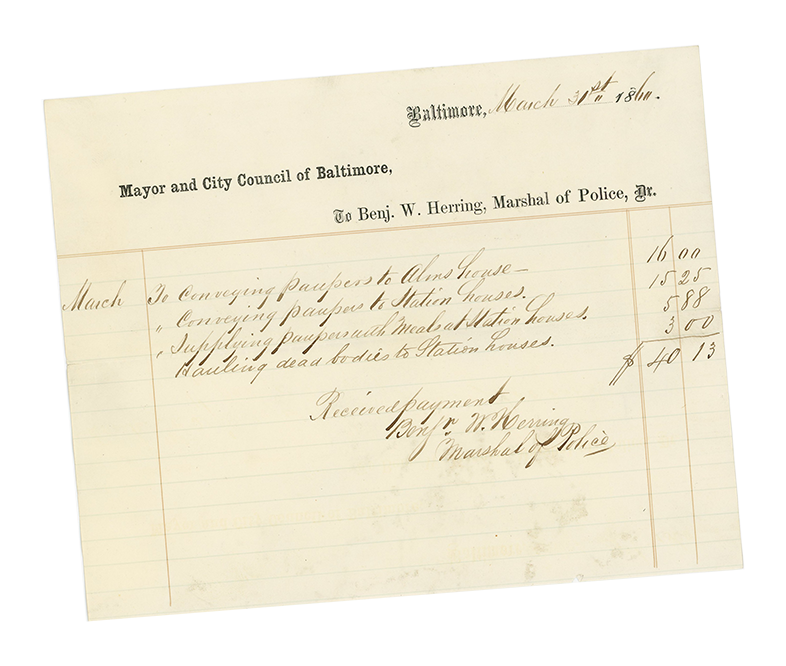 Baltimore, March 31st 1860.
Mayor and City Council of Baltimore,
To Benj. W. Herring, Marshal of Police, Dr.
March To Conveying paupers to Alms house— 16 00
" Conveying paupers to Station houses. 15 25
" Supplying paupers with Meals at Station houses. 5 88
Hauling dead bodies to Station houses. 3 00
$ 40 13
Received payment
Benjn W. Herring
Marshal of Police